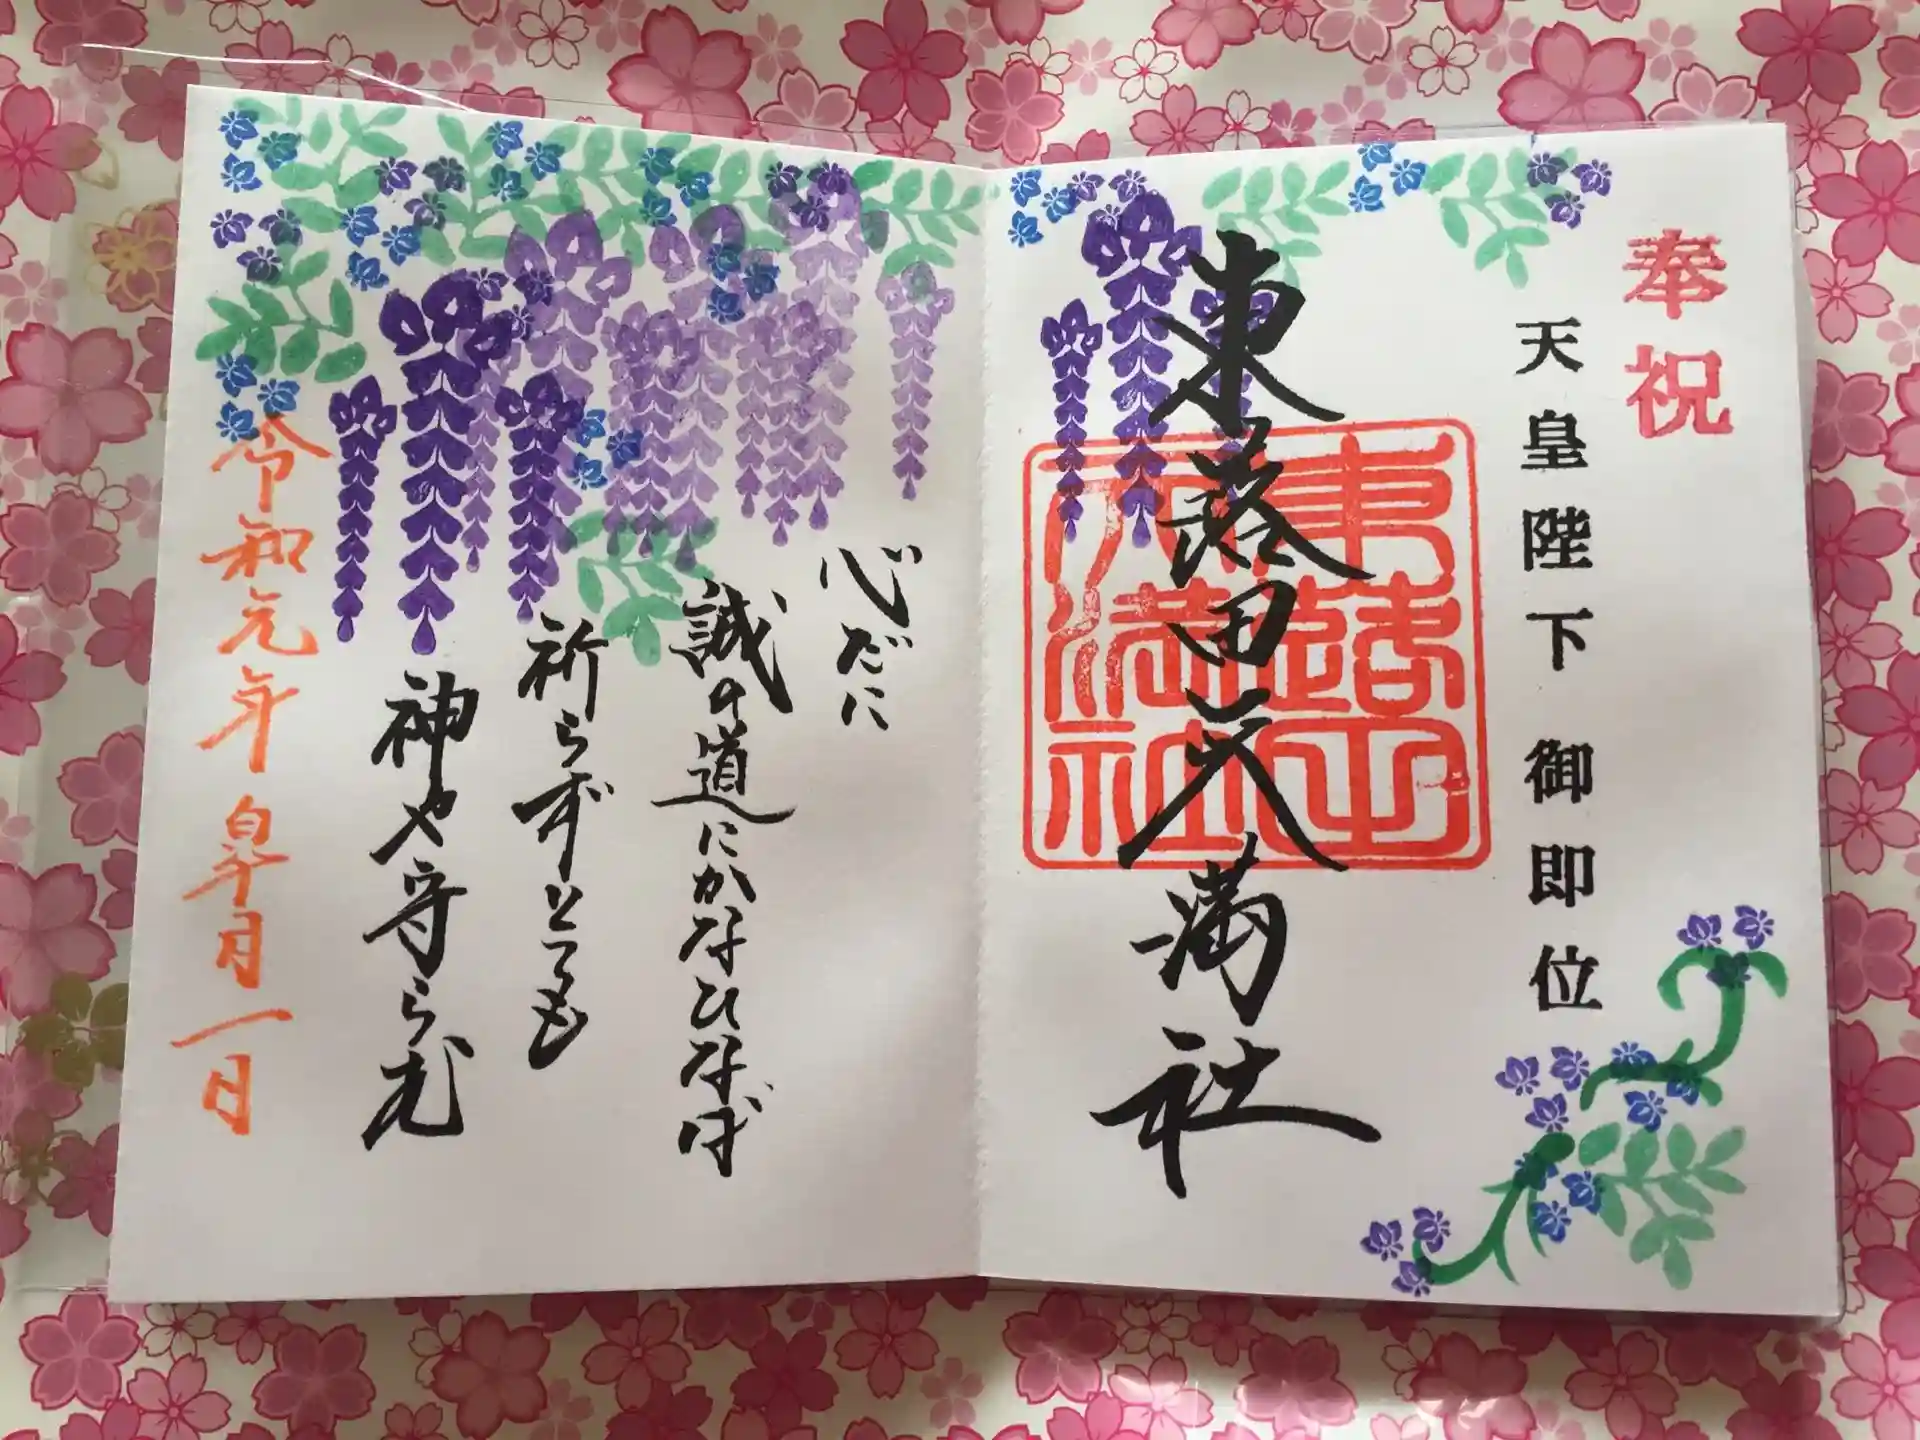 奉祝
天皇陛下 御即位
東蕗田天満社
東蕗田
天満社
心だに
誠の道にかなひなば
祈らずとても
神や守らむ
令和元年 皐月一日